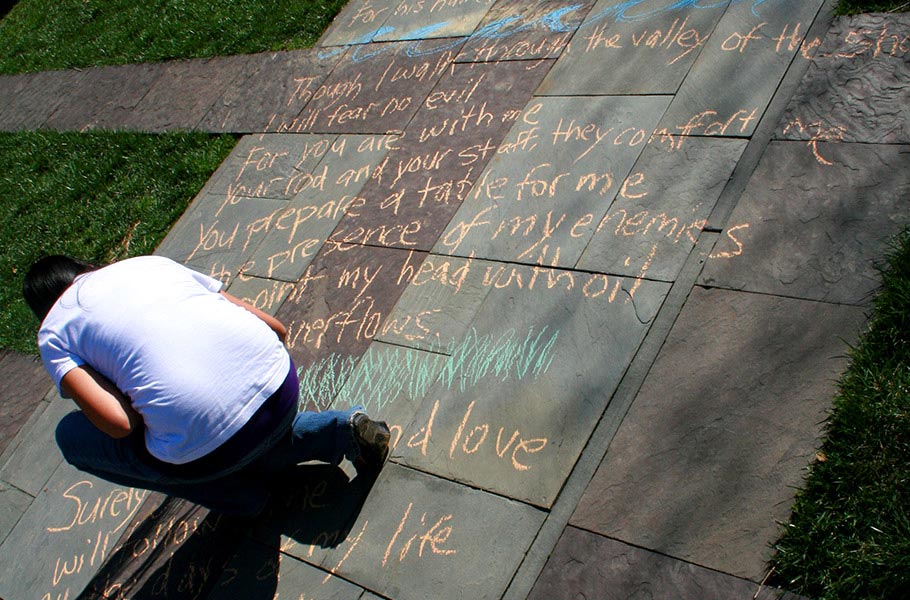 For his na
Though I walk through the valley of the sha
I will fear no evil
For you are with me
Your rod and your staff, they comfort me
You prepare a table for me
the presence of my enemies
oint my head with oil
verflows.
nd love
Surely
will follow me
the days of my life